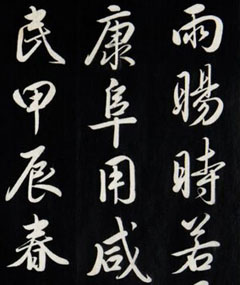 雨暘時若
康阜用咸
民甲辰春